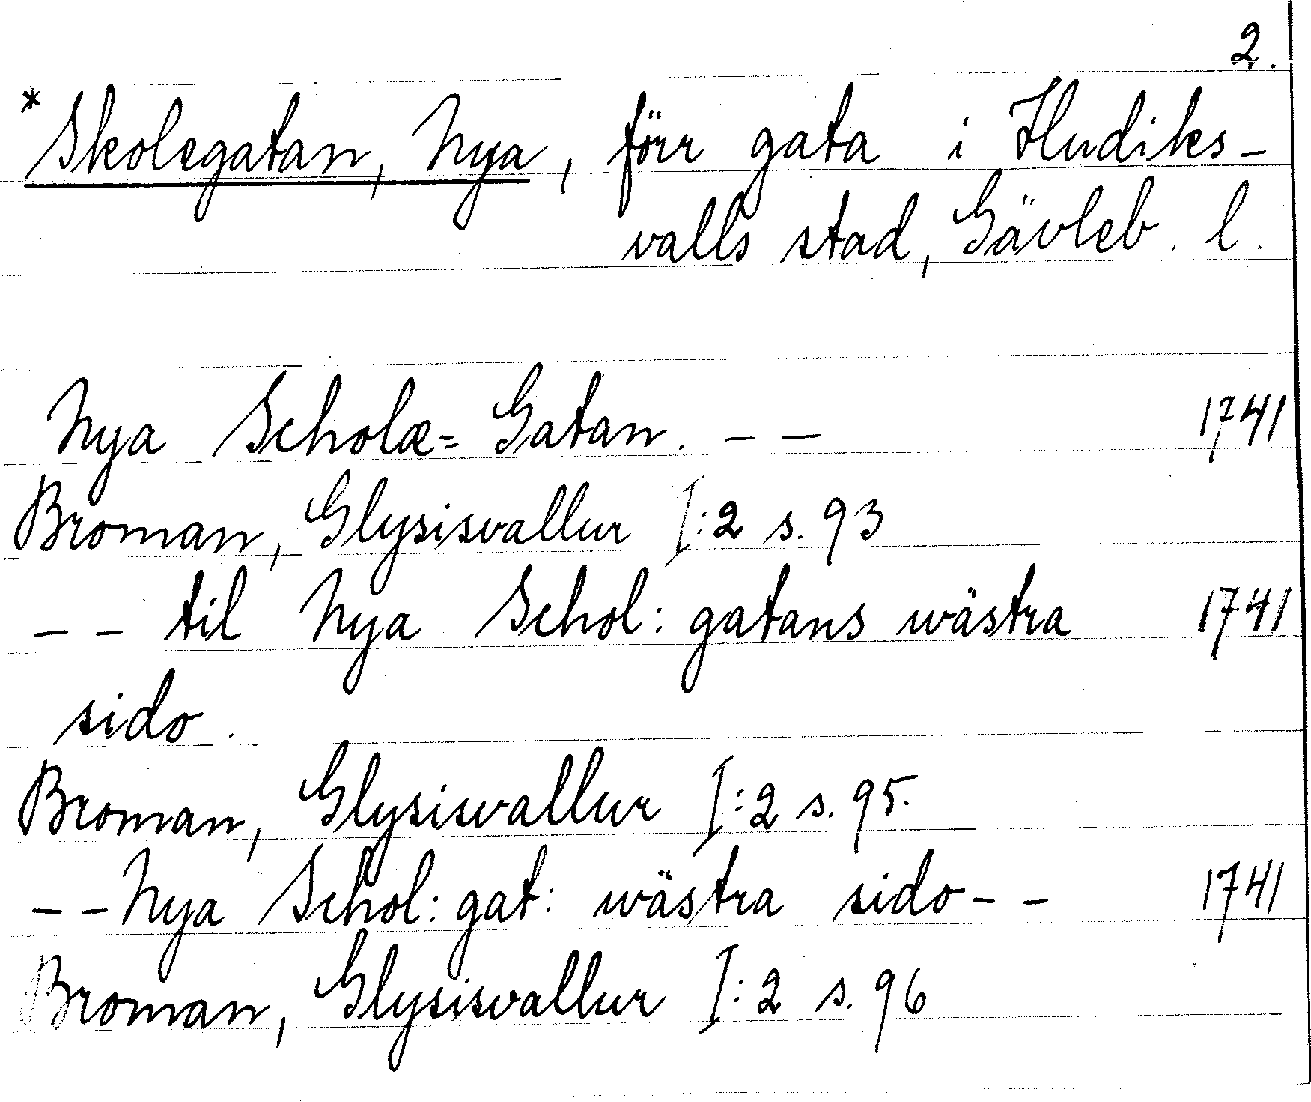 2.
*Skolegatan, Nya, förr gata i Hudiks-
valls stad, Gävleb. l.
Nya Scholæ= Gatan. - - 1741
Broman, Glysisvallur I:2 s. 93
- - til Nya Schol: gatans wästra 1741
sido.
Broman, Glysisvallur I:2 s. 95.
- - Nya Schol: gat: wästra sido - - 1741
Broman, Glysisvallur I:2 s. 96